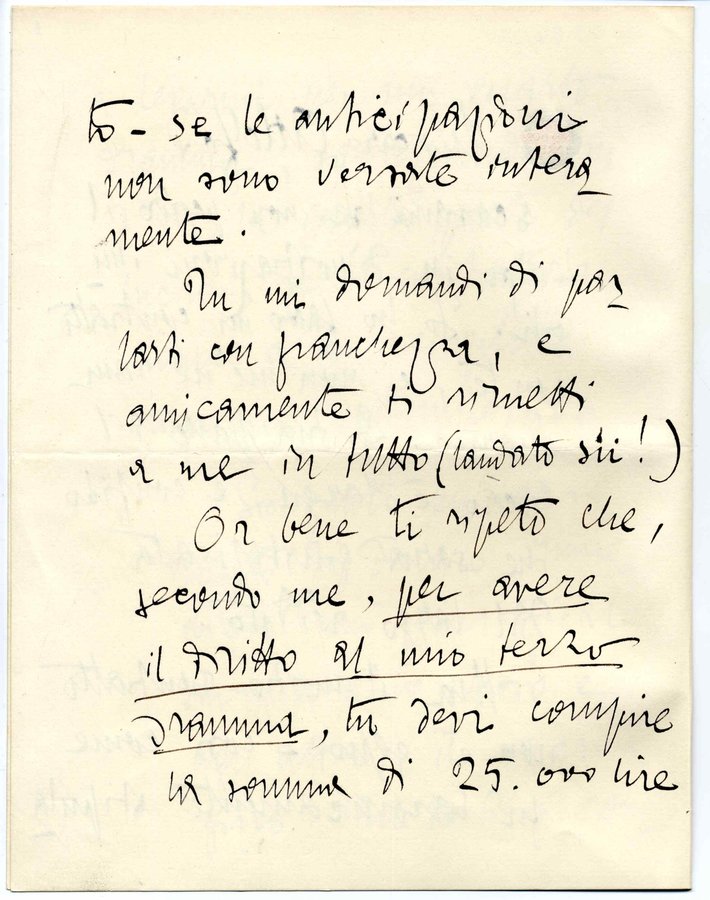 to - se le anticipazioni
non sono versate intera
mente.
Tu mi domandi di par
larti con franchezza, e
amicamente ti rimetti
a me in tutto (laudato sii!)
Or bene ti ripeto che,
secondo me, per avere
il diritto al mio terzo
dramma, tu devi compire
la somma di 25.000 lire